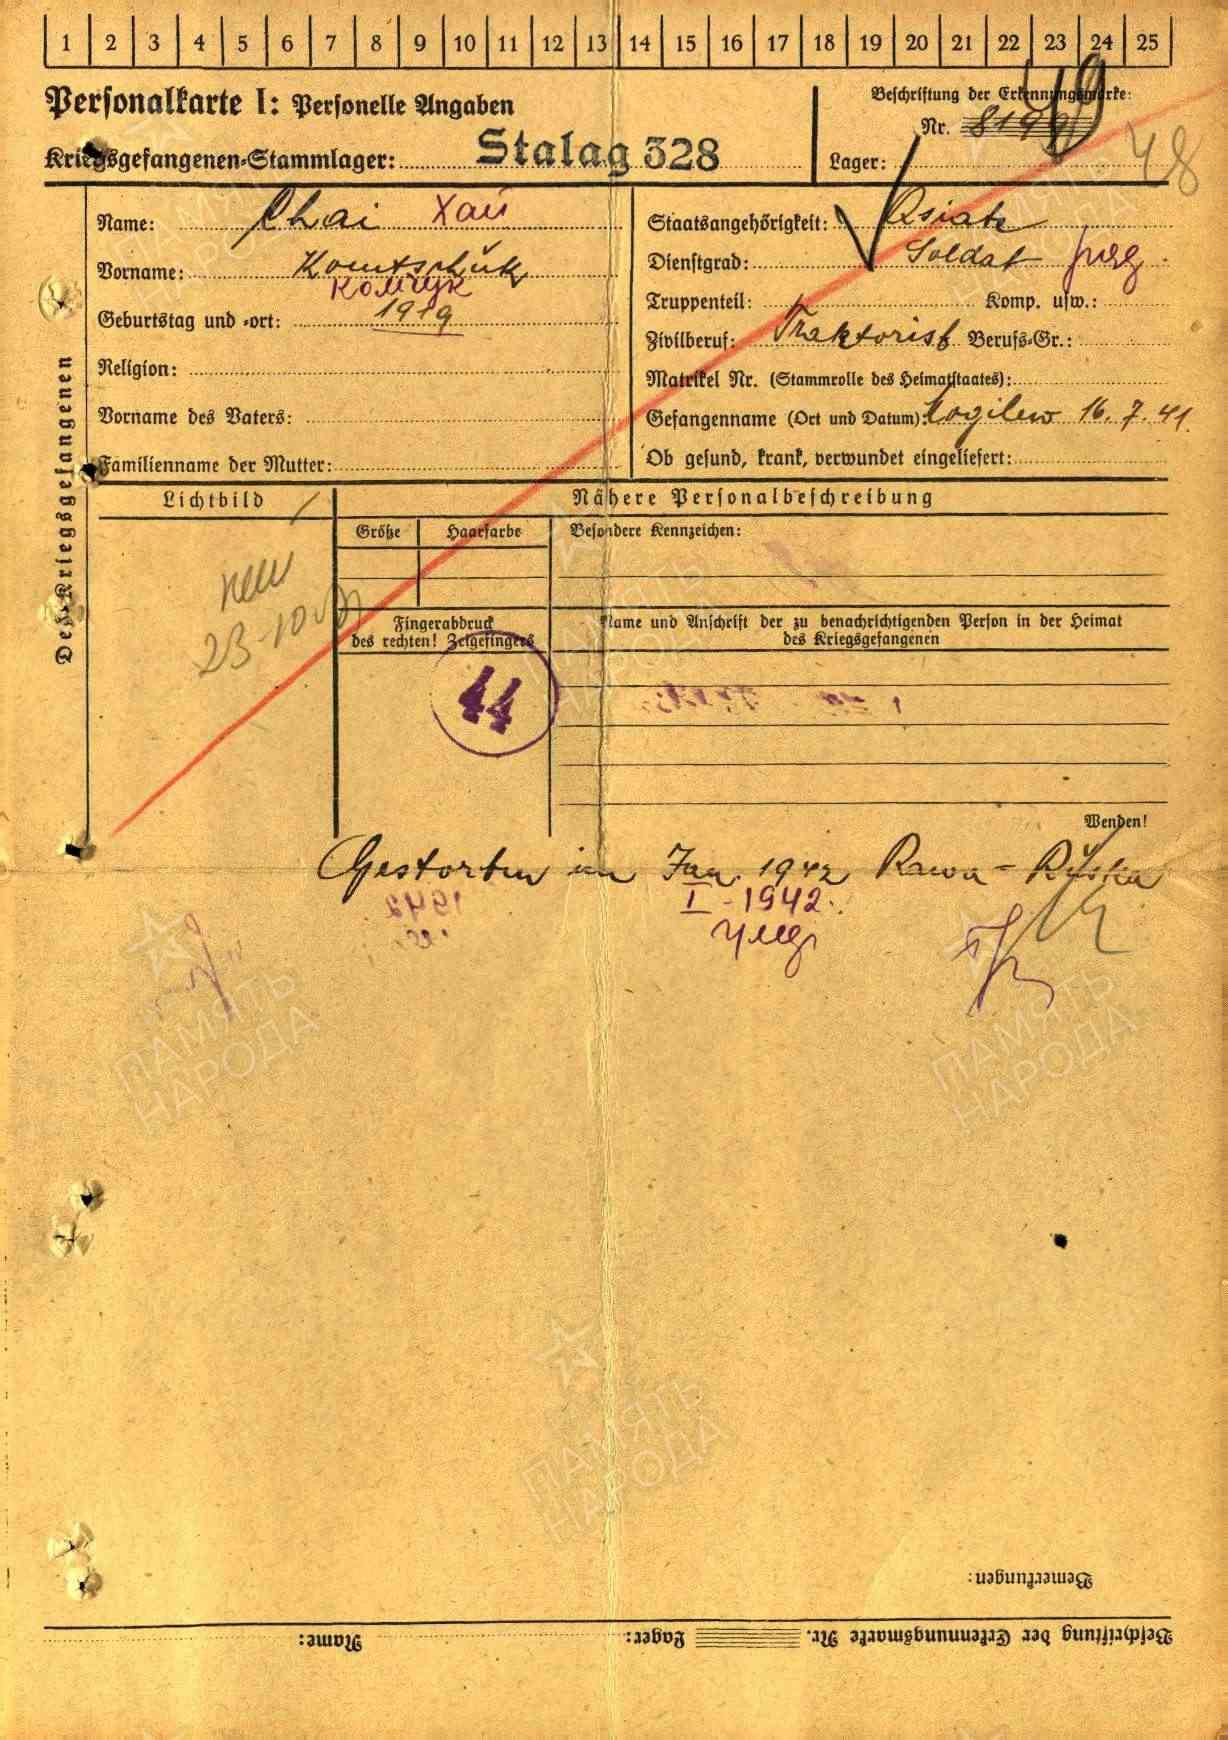 1 2 3 4 5 6 7 8 9 10 11 12 13 14 15 16 17 18 19 20 21 22 23 24 25
Personalkarte I: Personelle Angaben
Beschriftung der Erkennungsmarke:
Nr. 8199
49
48
Kriegsgefangenen-Stammlager: Stalag 328
Lager:
Des Kriegsgefangenen
Name: Chai Хаи
Vorname: Komtschuk
Комчук
Geburtstag und -ort: 1919
Religion:
Vorname des Vaters:
Familienname der Mutter:
Staatsangehörigkeit: Asiate
Dienstgrad: Soldat
Truppenteil: Komp. usw.:
Zivilberuf: Traktorist Berufs-Gr.:
Matrikel Nr. (Stammrolle des Heimatstaates):
Gefangenname (Ort und Datum): Mogilew 16.7.41.
Ob gesund, krank, verwundet eingeliefert:
Lichtbild
Nähere Personalbeschreibung
Größe
Haarfarbe
Besondere Kennzeichen:
Fingerabdruck
des rechten! Zeigefingers
Name und Anschrift der zu benachrichtigenden Person in der Heimat
des Kriegsgefangenen
44
Wenden!
Gestorben im Jan. 1942 Rawa-Ruska
I-1942.
Bemerkungen:
Beschriftung der Erkennungsmarke Nr. Lager: Name:
ПАМЯТЬ
НАРОДА